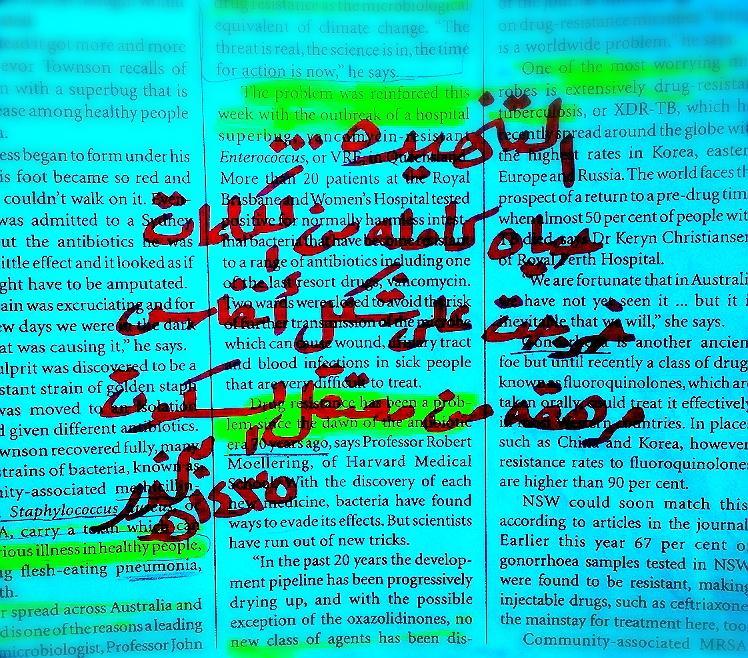 lead got more and more
evor Townson recalls of
n with a superbug that is
ease among healthy people
a.
ess began to form under his
is foot became so red and
couldn't walk on it. Even-
was admitted to a Sydney
ut the antibiotics he was
little effect and it looked as if
ght have to be amputated.
ain was excruciating and for
ew days we were in the dark
at was causing it," he says.
ulprit was discovered to be a
stant strain of golden staph
was moved to an isolation
d given different antibiotics.
wnson recovered fully, many
strains of bacteria, known as
nity-associated methicillin-
Staphylococcus aureus, or
A, carry a toxin which can
rious illness in healthy people,
ng flesh-eating pneumonia,
th.
r spread across Australia and
d is one of the reasons a leading
microbiologist, Professor John
drug-resistance as the microbiological
equivalent of climate change. "The
threat is real, the science is in, the time
for action is now," he says.
The problem was reinforced this
week with the outbreak of a hospital
superbug, vancomycin-resistant
Enterococcus, or VRE, in Queensland.
More than 20 patients at the Royal
Brisbane and Women's Hospital tested
positive for normally harmless intest-
inal bacteria that have become resistant
to a range of antibiotics including one
of the last resort drugs, vancomycin.
Two wards were closed to avoid the risk
of further transmission of the microbe
which can cause wound, urinary tract
and blood infections in sick people
that are very difficult to treat.
Drug resistance has been a prob-
lem since the dawn of the antibiotic
era 70 years ago, says Professor Robert
Moellering, of Harvard Medical
School. With the discovery of each
new medicine, bacteria have found
ways to evade its effects. But scientists
have run out of new tricks.
"In the past 20 years the develop-
ment pipeline has been progressively
drying up, and with the possible
exception of the oxazolidinones, no
new class of agents has been dis-
is a worldwide problem," he says.
One of the most worrying mic-
robes is extensively drug-resistant
tuberculosis, or XDR-TB, which h
recently spread around the globe wi
the highest rates in Korea, easter
Europe and Russia. The world faces th
prospect of a return to a pre-drug tim
when almost 50 per cent of people wit
TB died, says Dr Keryn Christiansen
of Royal Perth Hospital.
"We are fortunate that in Australi
we have not yet seen it ... but it i
inevitable that we will," she says.
Gonorrhoea is another ancien
foe but until recently a class of drug
known as fluoroquinolones, which are
taken orally, could treat it effectively
in most western countries. In place
such as China and Korea, however
resistance rates to fluoroquinolone
are higher than 90 per cent.
NSW could soon match this
according to articles in the journal
Earlier this year 67 per cent o
gonorrhoea samples tested in NSW
were found to be resistant, making
injectable drugs, such as ceftriaxone
the mainstay for treatment here, too
Community-associated MRSA
التنهيدة ..
حياه كامله من كلمات
خرجت على شكل أنفاس
مرهقه من
DISSO